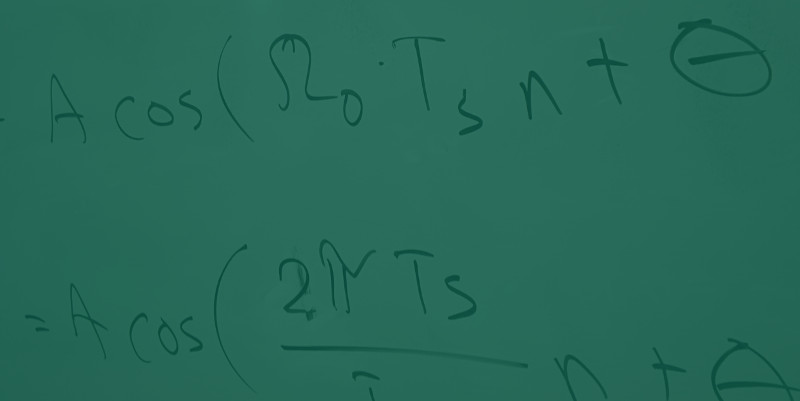 A cos( Ω₀ · Tₛ n + Θ
= A cos( 2π Ts / T n + Θ